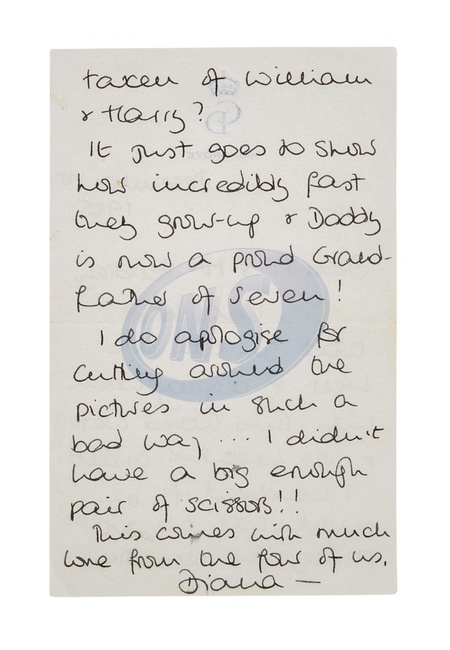 taken of William
& Harry?
It just goes to show
how incredibly fast
they grow-up & Daddy
is now a proud Grand-
father of seven!
I do apologise for
cutting around the
pictures in such a
bad way ... I didn't
have a big enough
pair of scissors!!
This comes with much
love from the four of us.
Diana —
ONS